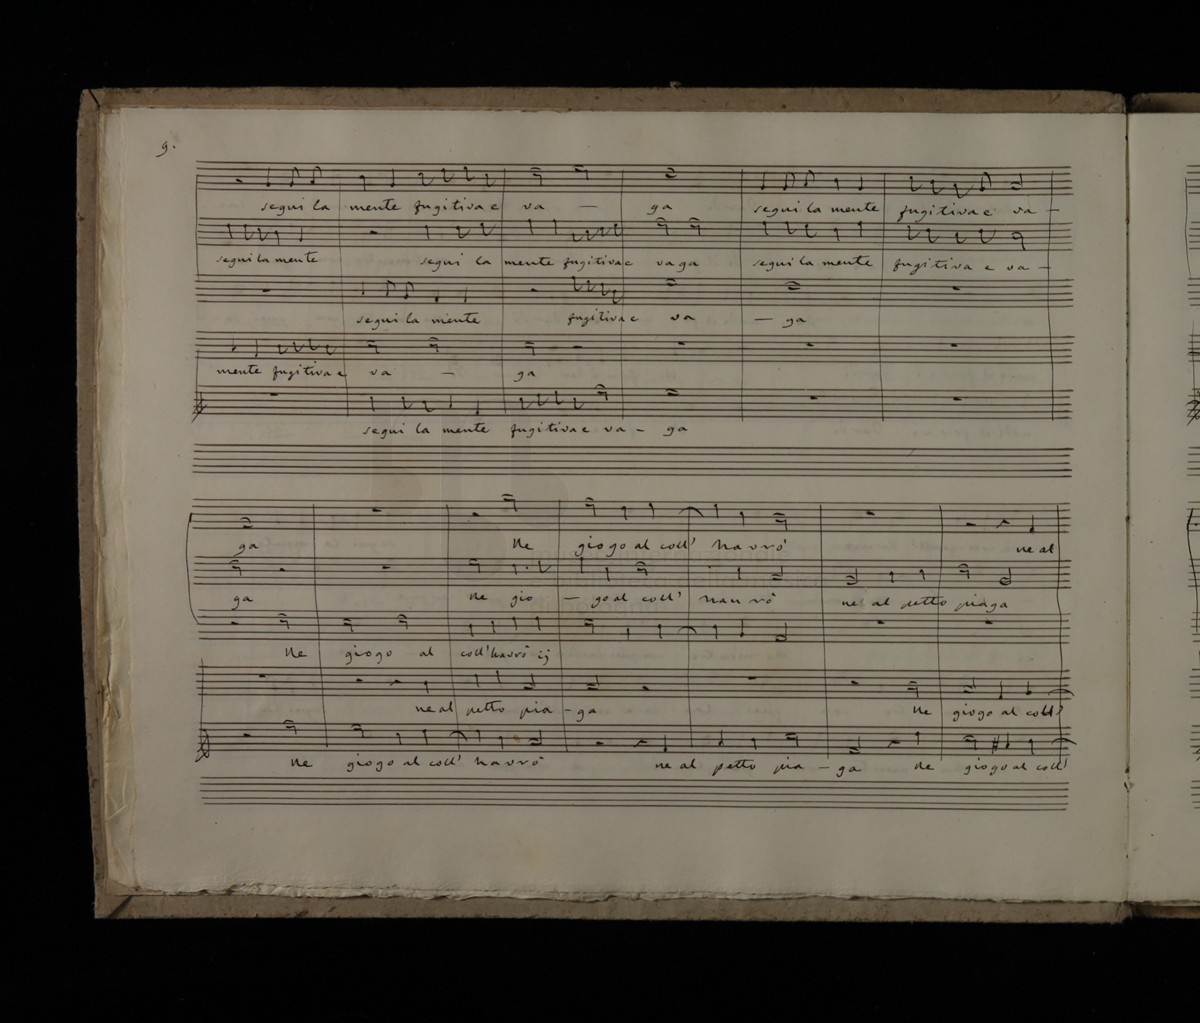 9.
segui la mente fugitiva e va — ga segui la mente fugitiva e va —
segui la mente segui la mente fugitiva e vaga segui la mente fugitiva e va —
segui la mente fugitiva e va — ga
mente fugitiva e va — ga
segui la mente fugitiva e va — ga
ga Ne giogo al coll' havrò ne al
ga ne gio — go al coll' havrò ne al petto piaga
Ne giogo al coll' havrò ij
ne al petto pia — ga Ne giogo al coll'
Ne giogo al coll' havrò ne al petto pia — ga Ne giogo al coll'